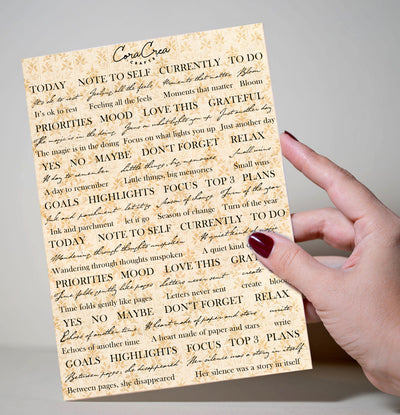 CoraCrea
CRAFTS
TODAY NOTE TO SELF CURRENTLY TO DO
It's ok to rest Feeling all the feels Moments that matter Bloom
It's ok to rest Feeling all the feels Moments that matter Bloom
PRIORITIES MOOD LOVE THIS GRATEFUL
The magic is in the doing Focus on what lights you up Just another day
The magic is in the doing Focus on what lights you up Just another day
YES NO MAYBE DON'T FORGET RELAX
A day to remember Little things, big memories Small wins
A day to remember Little things, big memories Small wins
GOALS HIGHLIGHTS FOCUS TOP 3 PLANS
Ink and parchment let it go Season of change Turn of the year
Ink and parchment let it go Season of change Turn of the year
TODAY NOTE TO SELF CURRENTLY TO DO
Wandering through thoughts unspoken A quiet kind
Wandering through thoughts unspoken A quiet kind
PRIORITIES MOOD LOVE THIS
Time folds gently like pages Letters never sent create
Time folds gently like pages Letters never sent create bloom
YES NO MAYBE DON'T FORGET RELAX
Echoes of another time A heart made of paper and stars write
Echoes of another time A heart made of paper and stars write
GOALS HIGHLIGHTS FOCUS TOP 3 PLANS
Between pages, she disappeared Her silence was a story in itself
Between pages, she disappeared Her silence was a story in itself